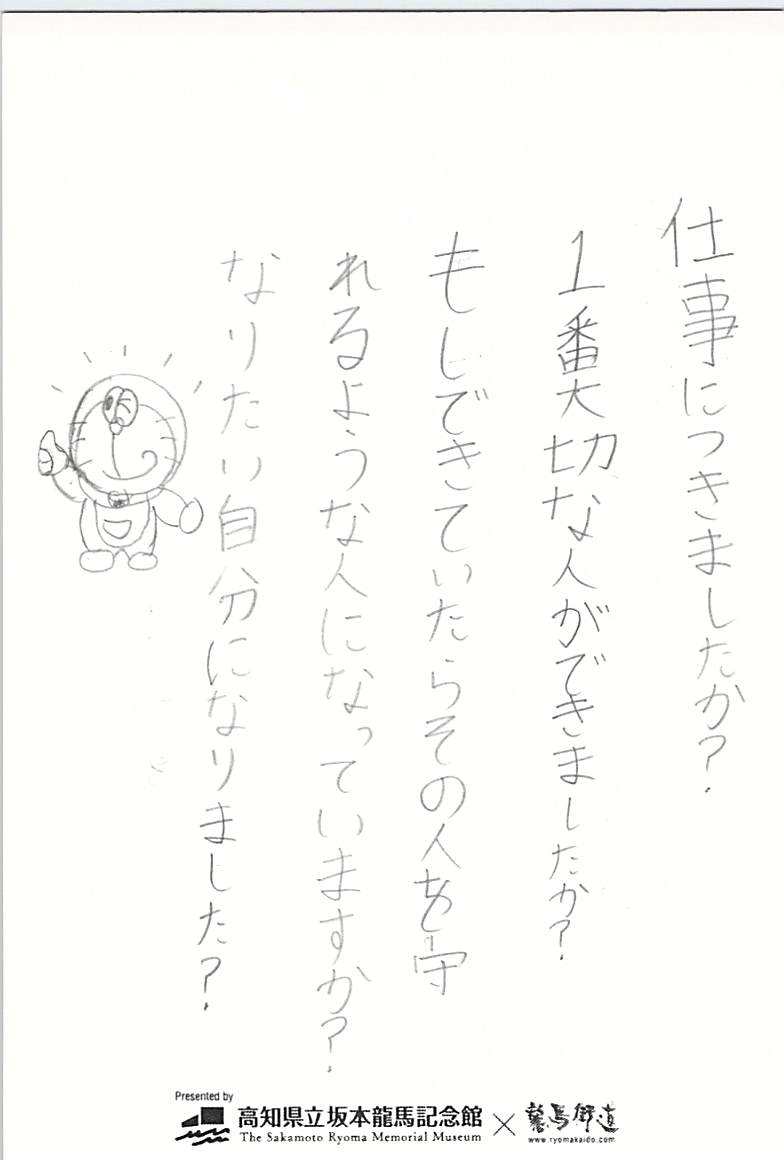 仕事につきましたか?
1番大切な人ができましたか?
もしできていたらその人を守
れるような人になっていますか?
なりたい自分になりました?
Presented by
高知県立坂本龍馬記念館
The Sakamoto Ryoma Memorial Museum
×
龍馬街道
www.ryomakaido.com